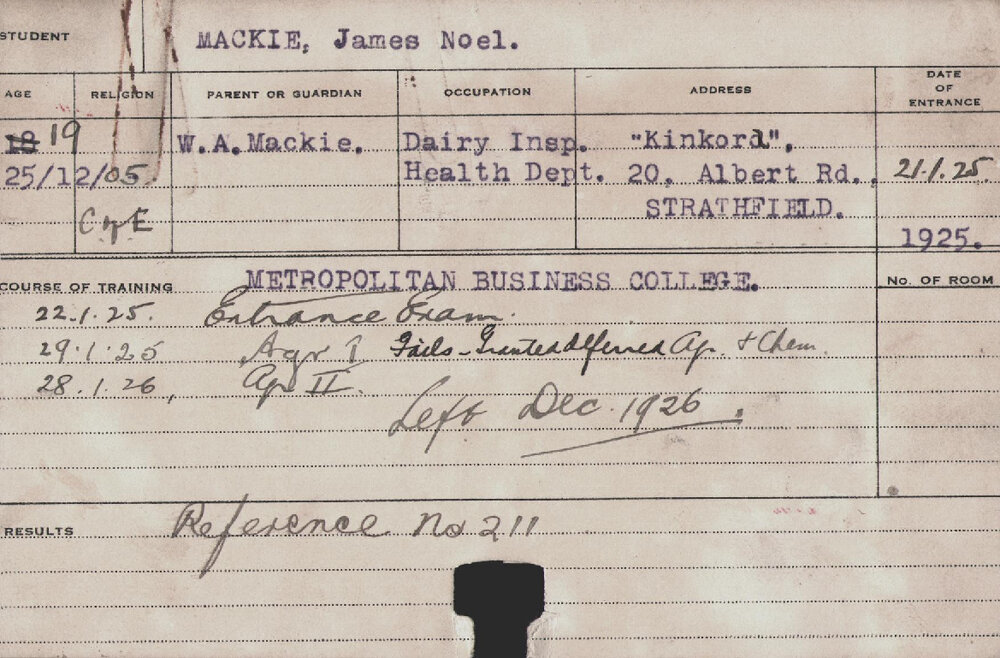 STUDENT MACKIE, James Noel.
AGE RELIGION PARENT OR GUARDIAN OCCUPATION ADDRESS DATE OF ENTRANCE
18 19 W.A.Mackie. Dairy Insp. "Kinkord",
25/12/05 Health Dept. 20, Albert Rd., 21.1.25.
C of E STRATHFIELD.
1925.
COURSE OF TRAINING METROPOLITAN BUSINESS COLLEGE. No. OF ROOM
22.1.25. Entrance Exam.
29.1.25 Agr I Fails - Granted deferred Ag. & Chem.
28.1.26, Ag II.
Left Dec. 1926.
RESULTS Reference No 211